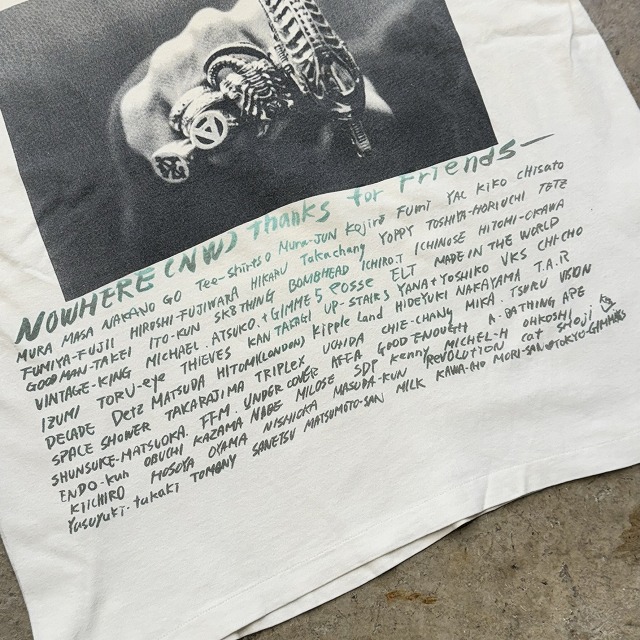 NOWHERE (NW) Thanks for Friends—
MURA MASA NAKANO GO Tee-shirts Mura-JUN Kojiro FUMI YAC KIKO CHISATO
FUMIYA-FUJII HIROSHI-FUJIWARA HIKARU Takachang YOPPY TOSHIYA-HORIUCHI TETE
GOODMAN-TAKEI ITO-KUN SK8THING BOMBHEAD ICHIRO.T ICHINOSE HITOMI-OKAWA
VINTAGE-KING MICHAEL. ATSUKO.+GIMME 5 POSSE ELT MADE IN THE WORLD
IZUMI TORU-eye THIEVES KAN TAKAGI UP-STAIRS YANA+YOSHIKO VKS CHI-CHO
DECADE Detz MATSUDA HITOMI(LONDON) Kipple Land HIDEYUKI NAKAYAMA T.A.R
SPACE SHOWER TAKARAJIMA TRIPLEX UCHIDA CHIE-CHANG MIKA. TSURU VISION
SHUNSUKE-MATSUOKA FFM. UNDER COVER AFFA GOOD ENOUGH A-BATHING APE
ENDO-KUN OBUCHI KAZAMA NABE MILOSE SDP Kenny MICHEL-H OHKOSHI
KIICHIRO HOSOYA OYAMA NISHIOKA MASUDA-KUN REVOLUTION cat SHOJI
Yusuyuki.takaki TOMMNY SONETSU MATSUMOTO-SAN MILK KAWA-CHO MORI-SAN TOKYO-GIMMERS